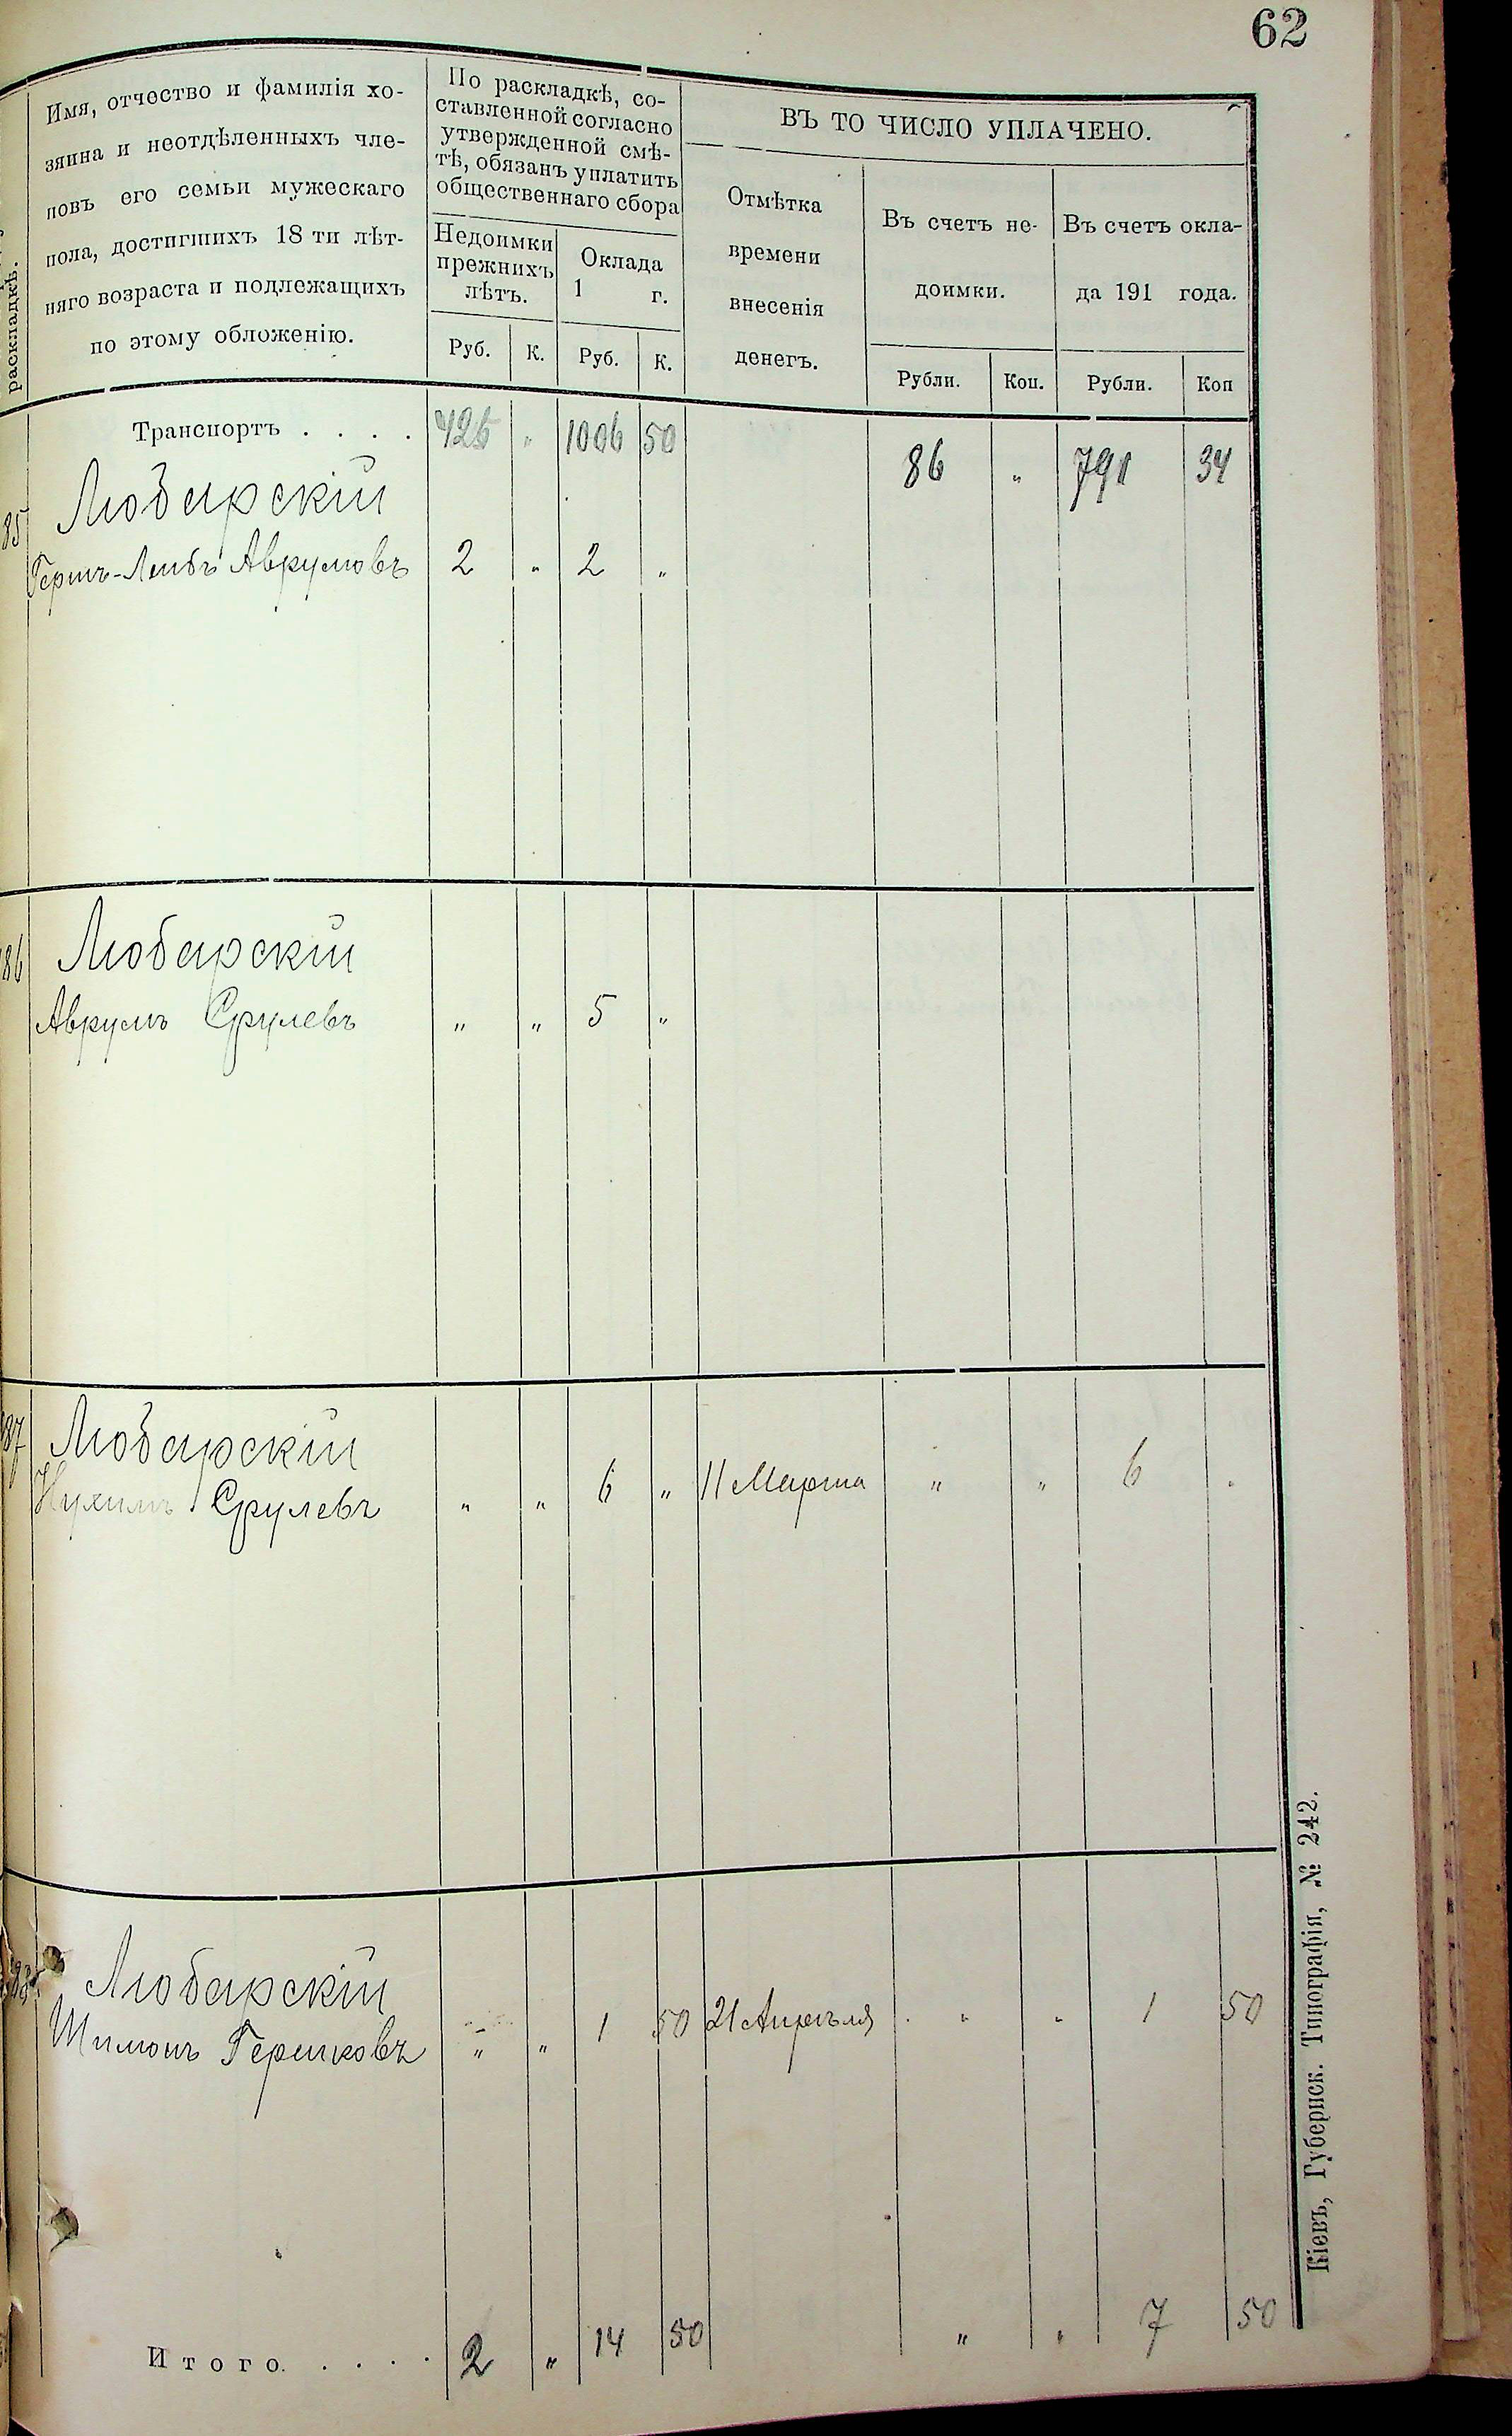 62
раскладкѣ.
Имя, отчество и фамилія хо-
зяина и неотдѣленныхъ чле-
новъ его семьи мужескаго
пола, достигшихъ 18 ти лѣт-
няго возраста и подлежащихъ
по этому обложенію.
По раскладкѣ, со-
ставленной согласно
утвержденной смѣ-
тѣ, обязанъ уплатить
общественнаго сбора
Недоимки
прежнихъ
лѣтъ.
Оклада
1 г.
Руб. К. Руб. К.
ВЪ ТО ЧИСЛО УПЛАЧЕНО.
Отмѣтка
времени
внесенія
денегъ.
Въ счетъ не-
доимки.
Въ счетъ окла-
да 191 года.
Рубли. Коп. Рубли. Коп
Транспортъ . . . . 426 „ 1006 50 86 „ 791 34
85 Любарскій
Гершъ-Лейбъ Аврумовъ 2 „ 2 „
86 Любарскій
Аврумъ Срулевъ „ „ 5 „
87 Любарскій
Нухимъ Срулевъ „ „ 6 „ 11 Марта „ „ 6 „
88 Любарскій
Шимонъ Гершковъ „ „ 1 50 21 Апрѣля „ „ 1 50
Итого. . . . . 2 „ 14 50 „ „ 7 50
Кіевъ, Губернск. Типографія, № 242.